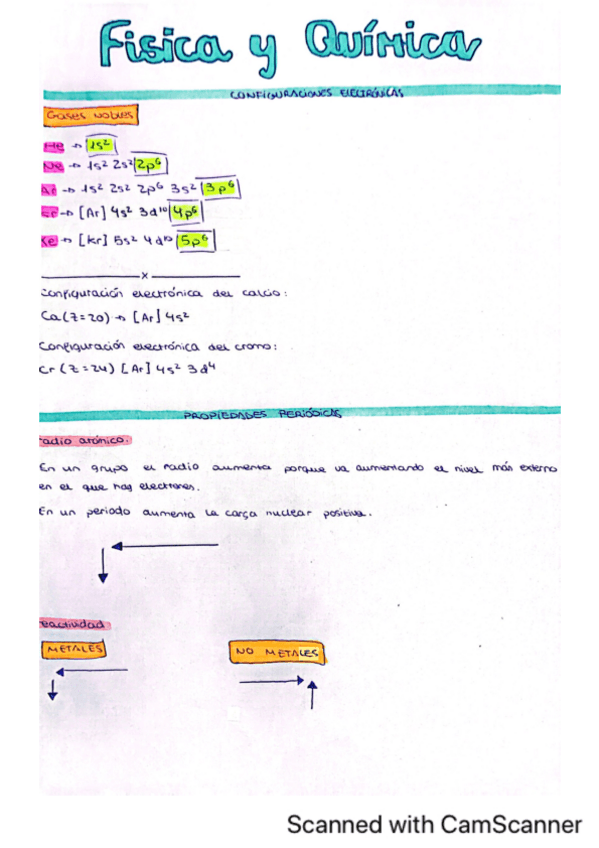 Fisica y Química
CONFIGURACIONES ELECTRÓNICAS
Gases nobles
He → 1s²
Ne → 1s² 2s² 2p⁶
Ar → 1s² 2s² 2p⁶ 3s² 3p⁶
Kr → [Ar] 4s² 3d¹⁰ 4p⁶
Xe → [Kr] 5s² 4d¹⁰ 5p⁶
x
Configuración electrónica del calcio:
Ca (Z=20) → [Ar] 4s²
Configuración electrónica del cromo:
Cr (Z=24) [Ar] 4s² 3d⁴
PROPIEDADES PERIÓDICAS
adio atómico.
En un grupo el radio aumenta porque va aumentando el nivel más externo
en el que hay electrones.
En un periodo aumenta la carga nuclear positiva.
eactividad
METALES
NO METALES
Scanned with CamScanner